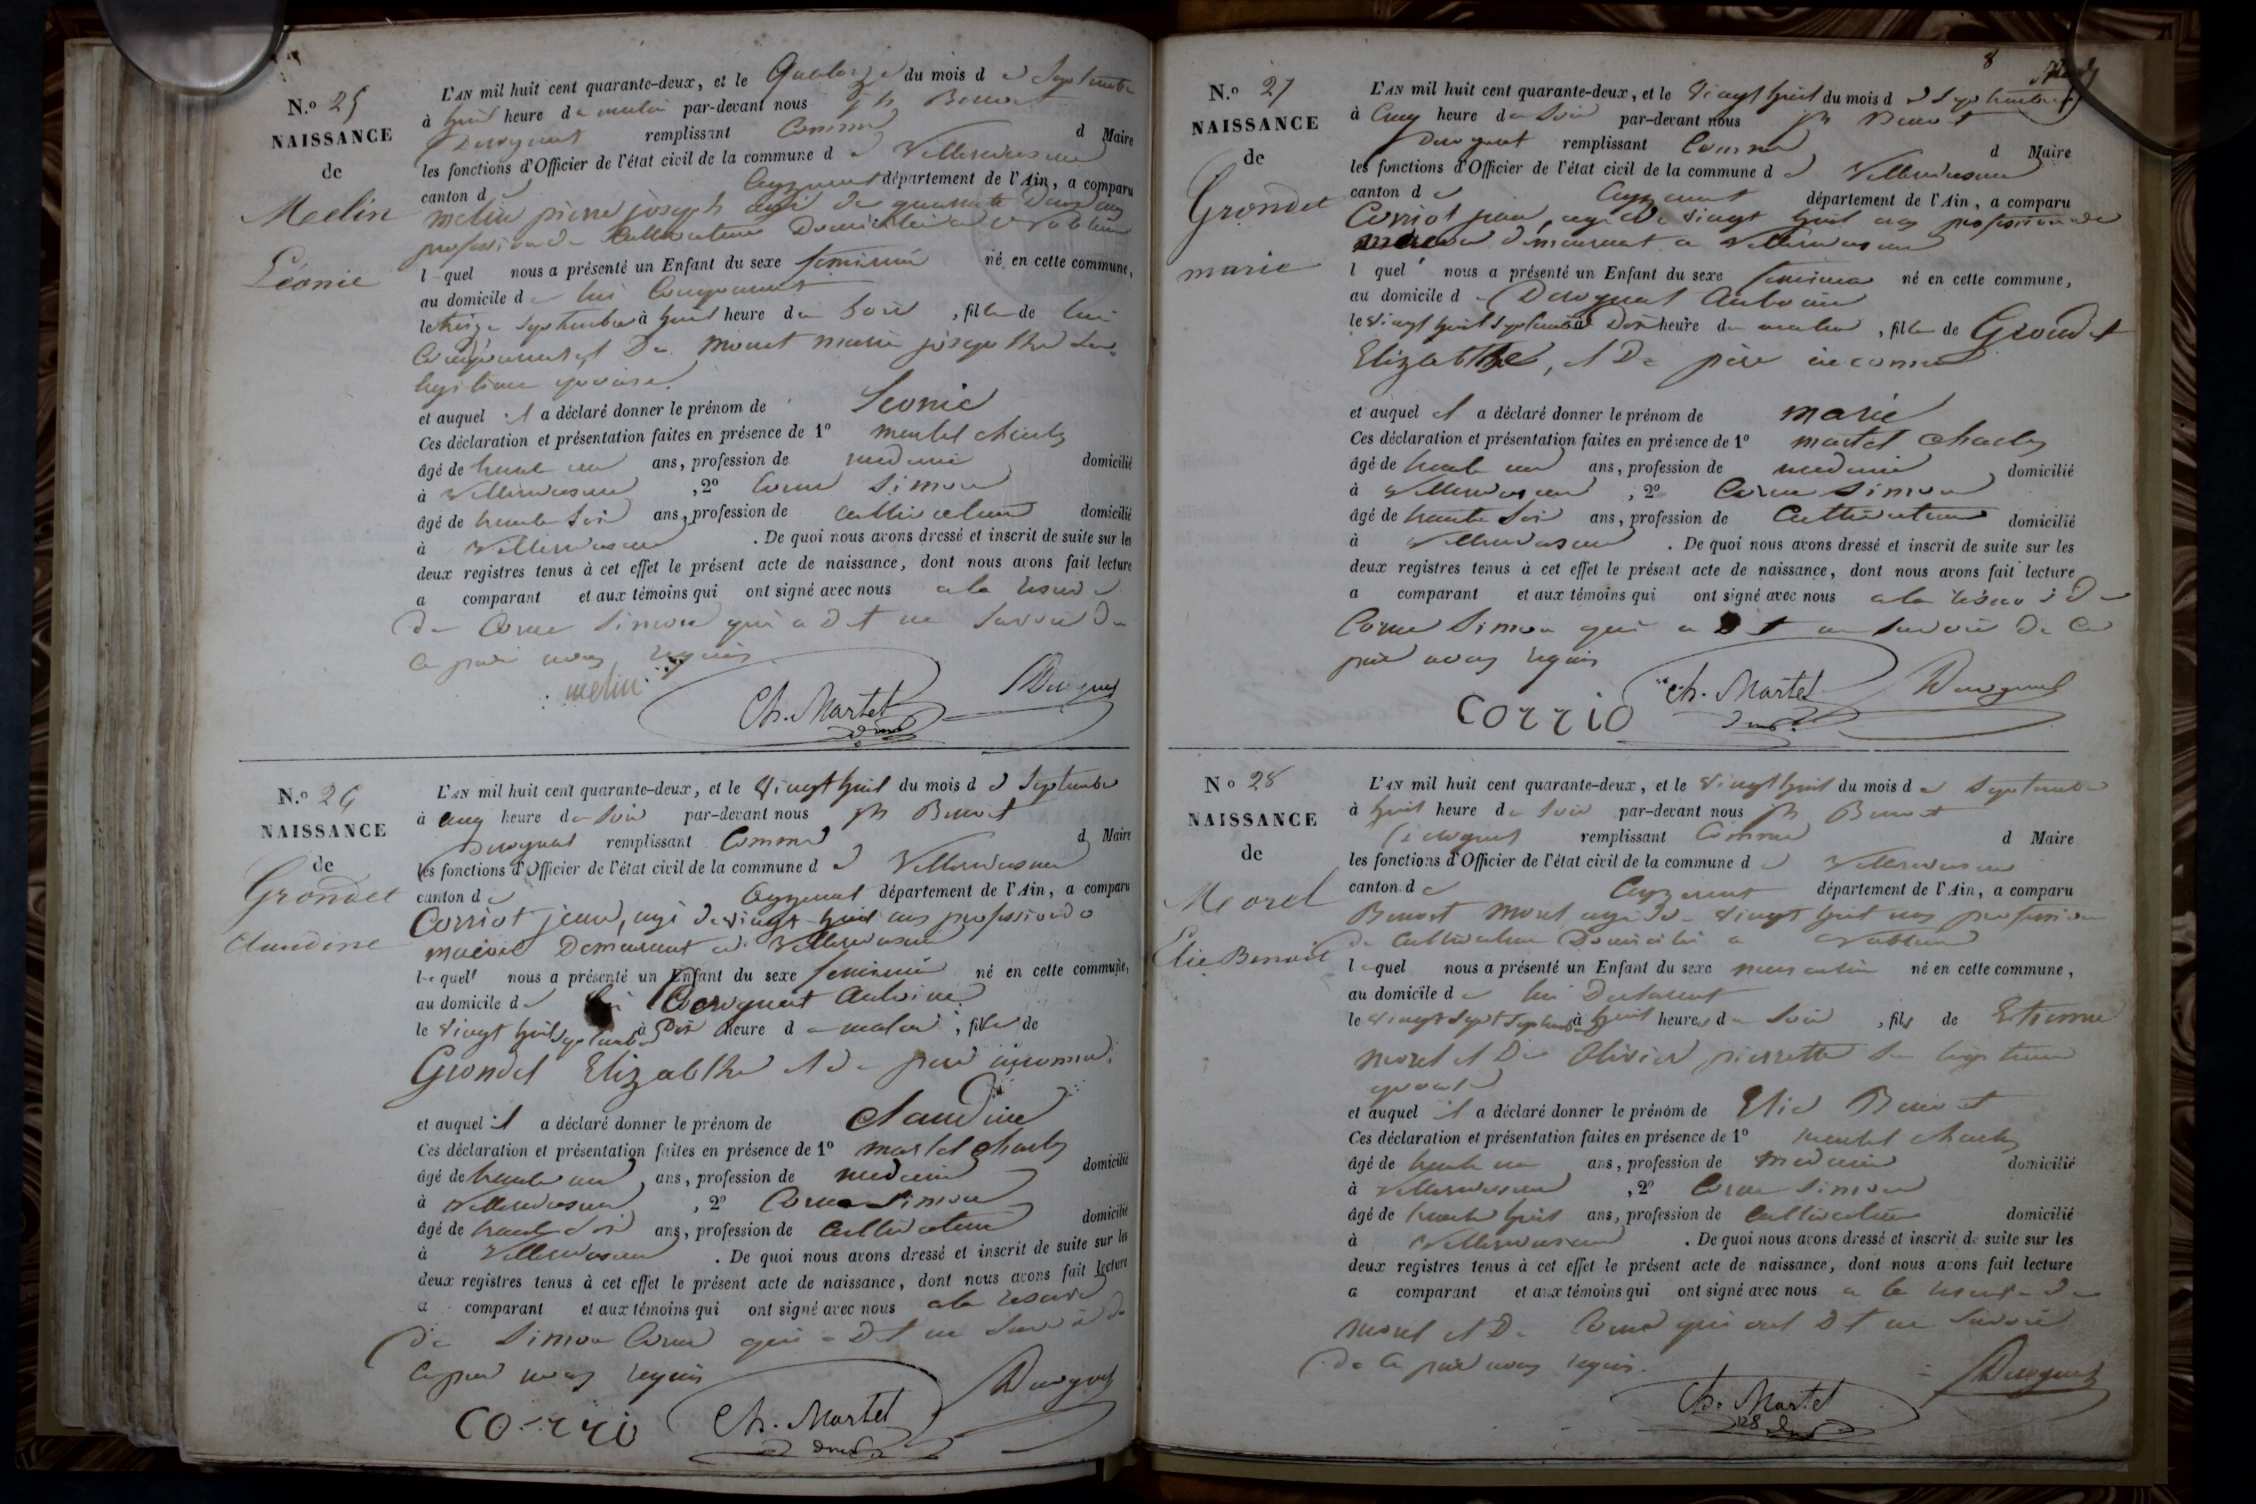 N.º 25
NAISSANCE
de
Melin
Léonie
L'AN mil huit cent quarante-deux, et le Quatorze du mois d e Septembre
à huit heure du matin par-devant nous ph Benoit
Durognat remplissant Comme d Maire
les fonctions d'Officier de l'état civil de la commune d e Villereversure
canton d e Ceyzeriat département de l'Ain, a comparu
melin pierre joseph agé de quarante deux ans
profession de Cultivateur Domicilié a
l quel nous a présenté un Enfant du sexe feminin né en cette commune,
au domicile d e lui Comparant
le treize Septembre à huit heure du Soir, fille de lui
Comparant et De monet marie josephte Sa
legitime epouse.
et auquel il a déclaré donner le prénom de Leonie
Ces déclaration et présentation faites en présence de 1º martel charles
âgé de trente un ans, profession de medecin domicilié
à Villereversure, 2º Corne Simon
âgé de trente Six ans, profession de cultivateur domicilié
à Villereversure. De quoi nous avons dressé et inscrit de suite sur les
deux registres tenus à cet effet le présent acte de naissance, dont nous avons fait lecture
a comparant et aux témoins qui ont signé avec nous a la reserve
de Corne Simon qui a Dit ne Savoir De
Ce faire unay requis
melin Ch. Martel Durognat
N.º 26
NAISSANCE
de
Grondet
Claudine
L'AN mil huit cent quarante-deux, et le Vingt huit du mois d e Septembre
à Cinq heure du Soir par-devant nous ph Benoit
Durognat remplissant Comme d Maire
les fonctions d'Officier de l'état civil de la commune d e Villereversure
canton d e Ceyzeriat département de l'Ain, a comparu
Corriot jean, agé de vingt huit ans profession de
macon Demeurant a Villereversure
le quel nous a présenté un Enfant du sexe feminin né en cette commune,
au domicile d e Durognat Antoine
le Vingt huit Septembre à Dix heure d u matin, fille de
Grondet Elizabthe et de pere inconnu.
et auquel il a déclaré donner le prénom de Claudine
Ces déclaration et présentation faites en présence de 1º martel charles
âgé de trente un, ans, profession de medecin domicilié
à Villereversure, 2º Corne Simon
âgé de trente Six ans, profession de cultivateur domicilié
à Villereversure. De quoi nous avons dressé et inscrit de suite sur les
deux registres tenus à cet effet le présent acte de naissance, dont nous avons fait lecture
a comparant et aux témoins qui ont signé avec nous a la reserve
de Simon Corne qui a Dit ne Savoir de
Ce faire unay requis
corrio Ch. Martel Durognat
8
N.º 27
NAISSANCE
de
Grondet
marie
L'AN mil huit cent quarante-deux, et le Vingt huit du mois d e Septembre
à Cinq heure du Soir par-devant nous ph Benoit
Durognat remplissant Comme d Maire
les fonctions d'Officier de l'état civil de la commune d e Villereversure
canton d e Ceyzeriat département de l'Ain, a comparu
Corriot jean, agé de vingt huit ans profession de
macon demeurant a Villereversure
l quel nous a présenté un Enfant du sexe feminin né en cette commune,
au domicile d e Durognat Antoine
le Vingt huit Septembre à Dix heure du matin, fille de Grondet
Elizabthe, et De père inconnu
et auquel il a déclaré donner le prénom de marie
Ces déclaration et présentation faites en présence de 1º martel charles
âgé de trente un ans, profession de medecin domicilié
à Villereversure, 2º Corne Simon
âgé de trente Six ans, profession de Cultivateur domicilié
à Villereversure. De quoi nous avons dressé et inscrit de suite sur les
deux registres tenus à cet effet le présent acte de naissance, dont nous avons fait lecture
a comparant et aux témoins qui ont signé avec nous a la réserve De
Corne Simon qui a Dit ne Savoir De Ce
faire unay requis
corrio Ch. Martel Durognat
Nº 28
NAISSANCE
de
Morel
Elie Benoit
L'AN mil huit cent quarante-deux, et le Vingt huit du mois d e Septembre
à huit heure du Soir par-devant nous ph Benoit
Durognat remplissant Comme d Maire
les fonctions d'Officier de l'état civil de la commune d e Villereversure
canton d e Ceyzeriat département de l'Ain, a comparu
Benoit Morel agé de Vingt huit ans profession
de Cultivateur Domicilié a
l e quel nous a présenté un Enfant du sexe masculin né en cette commune,
au domicile d e lui Declarant
le Vingt Sept Septembre à huit heures du Soir, fils de Etienne
Morel et De Olivier pierrette Sa legitime
epouse
et auquel il a déclaré donner le prénom de Elie Benoit
Ces déclaration et présentation faites en présence de 1º martel charles
âgé de trente un ans, profession de medecin domicilié
à Villereversure, 2º Corne Simon
âgé de trente huit ans, profession de cultivateur domicilié
à Villereversure. De quoi nous avons dressé et inscrit de suite sur les
deux registres tenus à cet effet le présent acte de naissance, dont nous avons fait lecture
a comparant et aux témoins qui ont signé avec nous a la reserve De
Morel et De Corne qui ont Dit ne Savoir
de Ce faire unay requis.
Ch. Martel Durognat